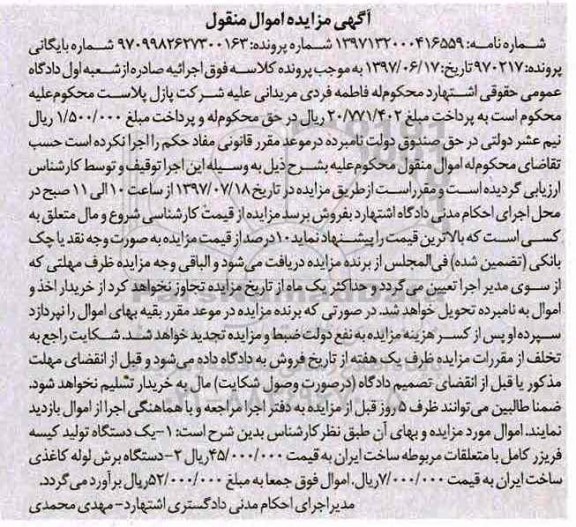 آگهی مزایده اموال منقول
شماره نامه: ۱۳۹۷۱۳۲۰۰۰۴۱۶۵۵۹ شماره پرونده: ۹۷۰۹۹۸۲۶۲۷۳۰۰۱۶۳ شماره بایگانی
پرونده:۹۷۰۲۱۷ تاریخ:۱۳۹۷/۰۶/۱۷ به موجب پرونده کلاسه فوق اجرائیه صادره از شعبه اول دادگاه
عمومی حقوقی اشتهارد محکوم‌له فاطمه فردی مریدانی علیه شرکت پازل پلاست محکوم‌علیه
محکوم است به پرداخت مبلغ ۲۰/۷۷۱/۴۰۲ ریال در حق محکوم‌له و پرداخت مبلغ ۱/۵۰۰/۰۰۰ ریال
نیم عشر دولتی در حق صندوق دولت نامبرده در موعد مقرر قانونی مفاد حکم را اجرا نکرده است حسب
تقاضای محکوم‌له اموال منقول محکوم‌علیه بشرح ذیل به وسیله این اجرا توقیف و توسط کارشناس
ارزیابی گردیده است و مقرر است از طریق مزایده در تاریخ ۱۳۹۷/۰۷/۱۸ از ساعت ۱۰ الی ۱۱ صبح در
محل اجرای احکام مدنی دادگاه اشتهارد بفروش برسد مزایده از قیمت کارشناسی شروع و مال متعلق به
کسی است که بالاترین قیمت را پیشنهاد نماید ۱۰درصد از قیمت مزایده به صورت وجه نقد یا چک
بانکی (تضمین شده) فی‌المجلس از برنده مزایده دریافت می‌شود و الباقی وجه مزایده ظرف مهلتی که
از سوی مدیر اجرا تعیین می‌گردد و حداکثر یک ماه از تاریخ مزایده تجاوز نخواهد کرد از خریدار اخذ و
اموال به نامبرده تحویل خواهد شد. در صورتی که برنده مزایده در موعد مقرر بقیه بهای اموال را نپردازد
سپرده او پس از کسر هزینه مزایده به نفع دولت ضبط و مزایده تجدید خواهد شد. شکایت راجع به
تخلف از مقررات مزایده ظرف یک هفته از تاریخ فروش به دادگاه داده می‌شود و قبل از انقضای مهلت
مذکور یا قبل از انقضای تصمیم دادگاه (درصورت وصول شکایت) مال به خریدار تسلیم نخواهد شود.
ضمنا طالبین می‌توانند ظرف ۵ روز قبل از مزایده به دفتر اجرا مراجعه و با هماهنگی اجرا از اموال بازدید
نمایند. اموال مورد مزایده و بهای آن طبق نظر کارشناس بدین شرح است: ۱-یک دستگاه تولید کیسه
فریزر کامل با متعلقات مربوطه ساخت ایران به قیمت ۴۵/۰۰۰/۰۰۰ریال ۲-دستگاه برش لوله کاغذی
ساخت ایران به قیمت ۷/۰۰۰/۰۰۰ریال. اموال فوق جمعا به مبلغ ۵۲/۰۰۰/۰۰۰ریال برآورد می‌گردد.
مدیر اجرای احکام مدنی دادگستری اشتهارد-مهدی محمدی